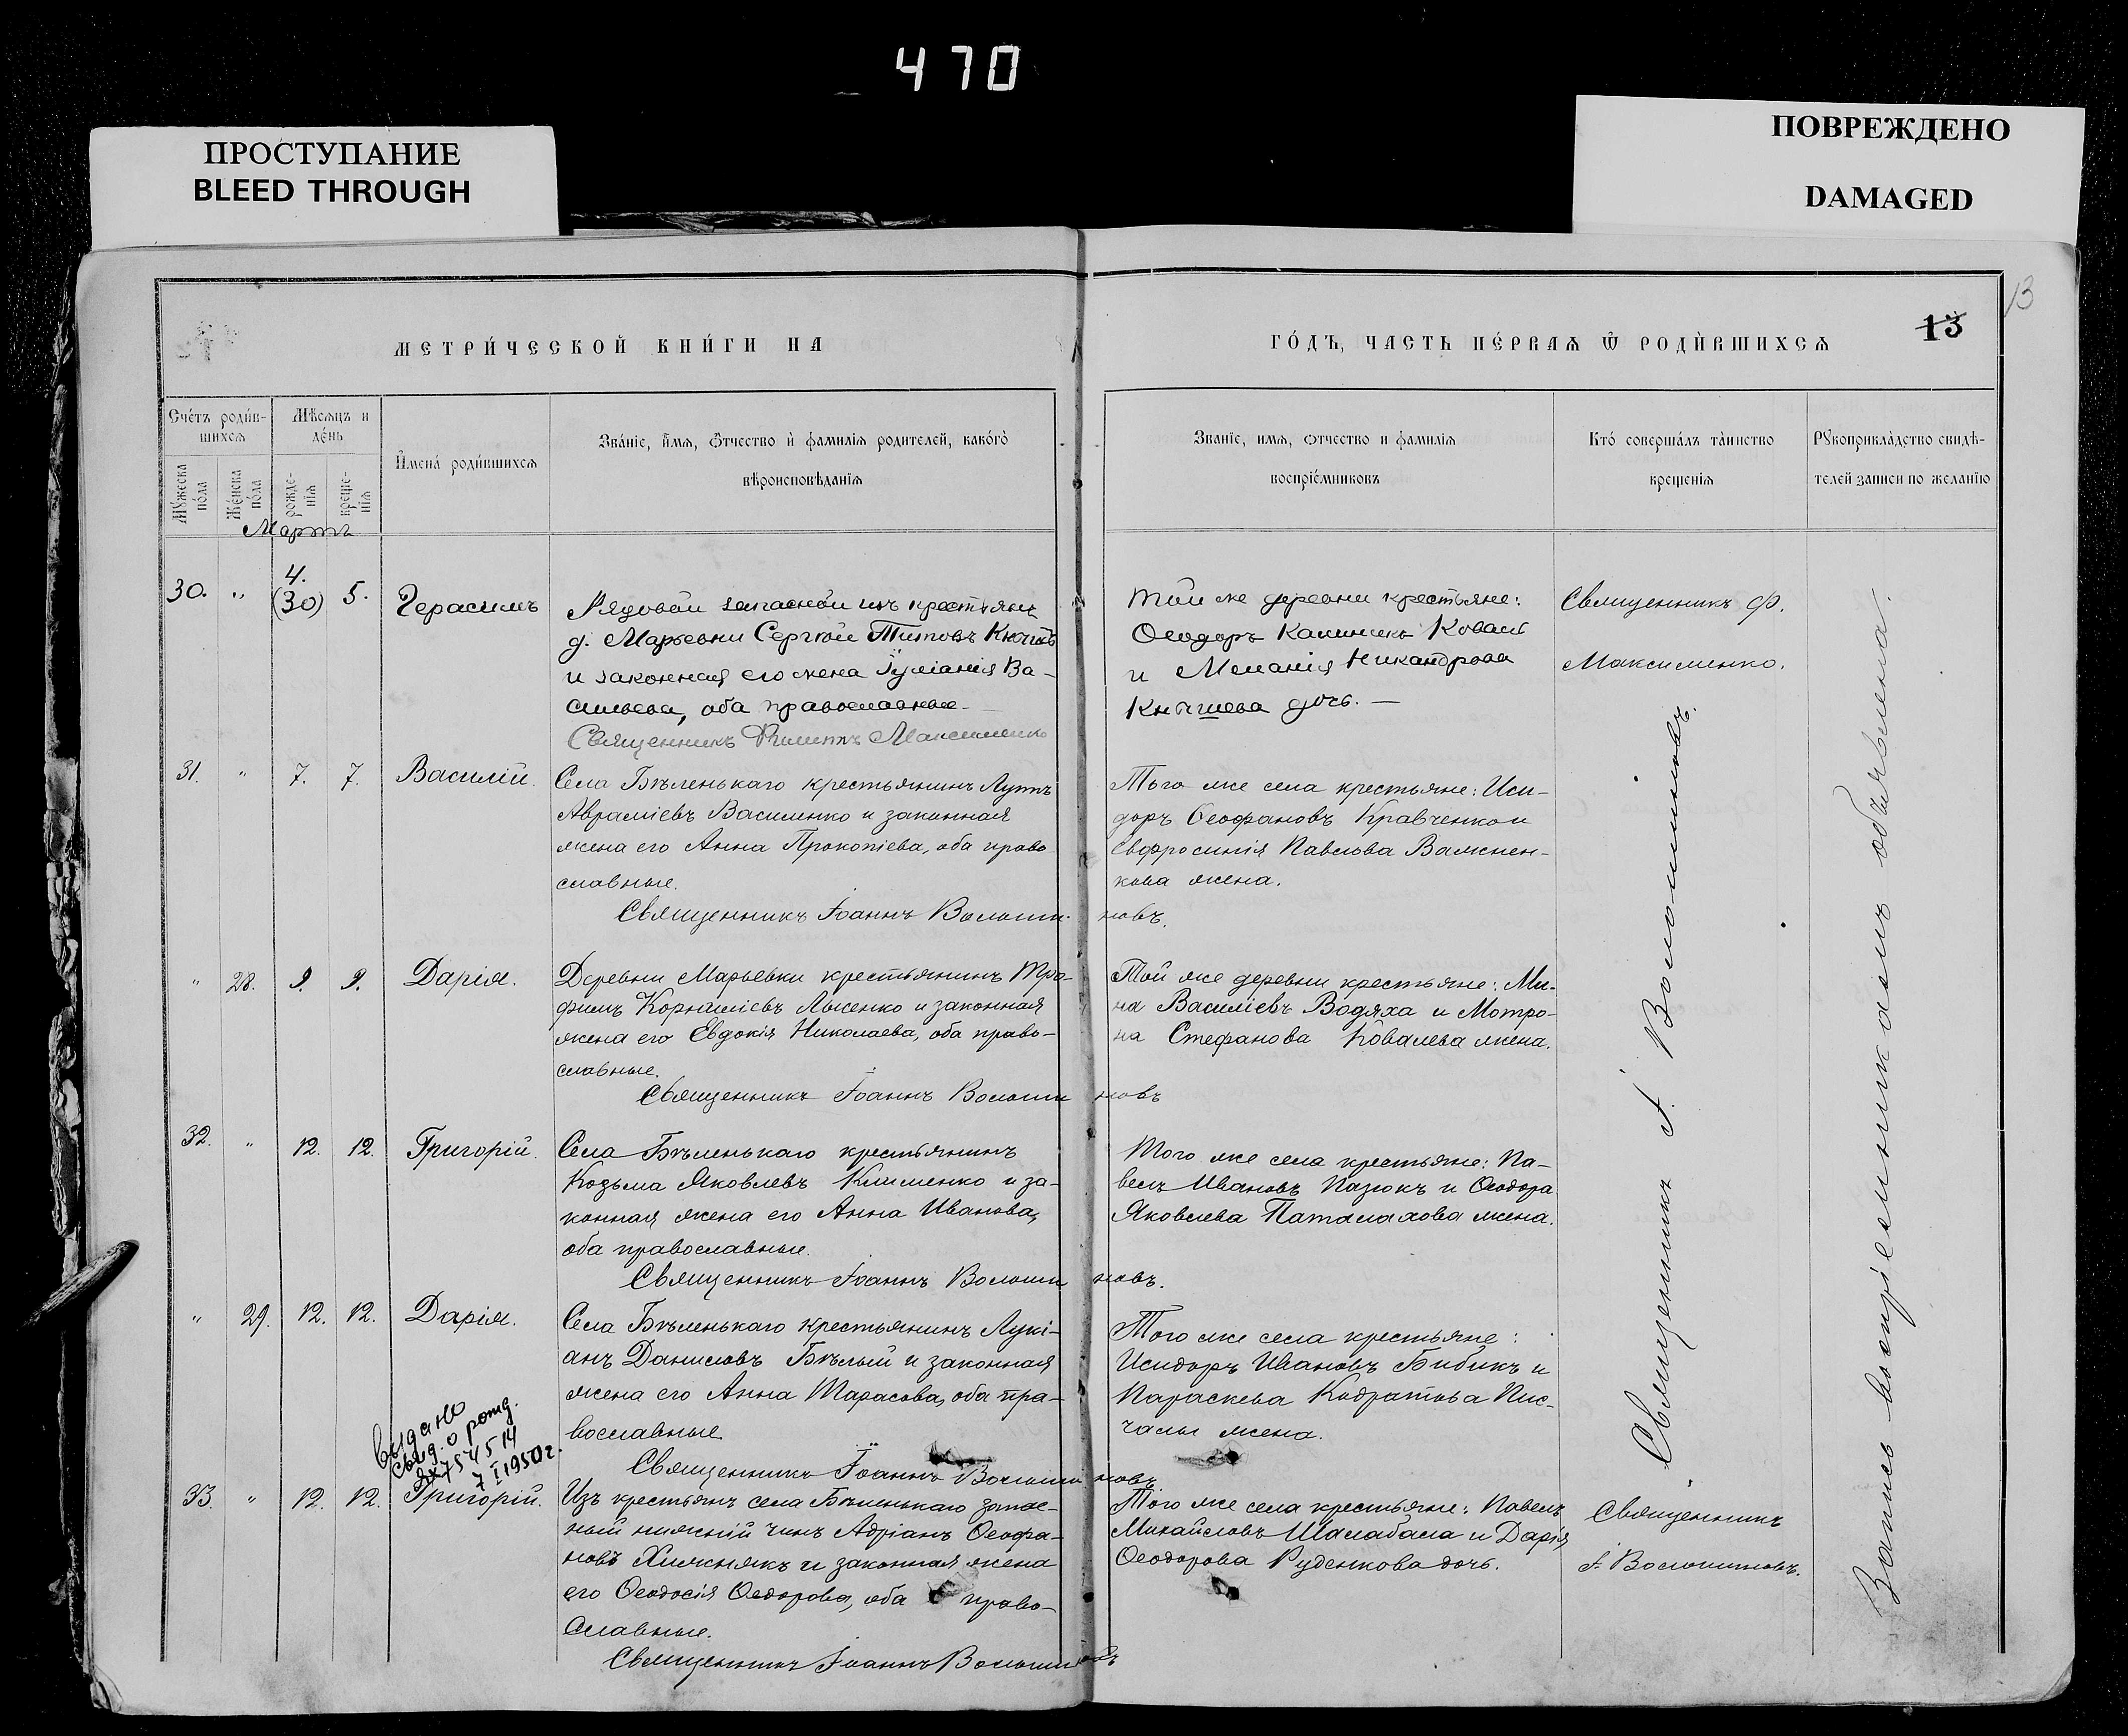 470
ПРОСТУПАНИЕ
BLEED THROUGH
ПОВРЕЖДЕНО
DAMAGED
13
13
МЕТРИ́ЧЕСКОЙ КНИ́ГИ НА
ГО́ДЪ, ЧАСТЬ ПЕ́РВАѦ Ѿ РОДИ́ВШИХСѦ
Сче́тъ роди́в-
шихсѧ
Мѣсѧцъ и
де́нь
Мꙋ́жеска
по́ла
Же́нска
по́ла
рожде-
нїѧ
креще-
нїѧ
И҆мена̀ роди́вшихсѧ
Зва́нїе, и҆́мѧ, ѻ҆́тчество и҆ фамилїѧ родителей, како́гѡ
вѣроисповѣданїѧ
Званїе, имѧ, ѻтчество и фамилїѧ
воспрїе́мниковъ
Кто́ соверша́лъ та́инство
крещенїѧ
Рꙋкоприкла́дство свидѣ-
телей записи по желанїю
Мартъ
30. " 4. (30) 5. Герасимъ
Рядовой запасной изъ крестьянъ
д. Марьевки Сергѣй Титовъ
и законная его жена Іуліанія Ва-
сильева, оба православные.
Священникъ Филиппъ Максименко
Той же деревни крестьяне:
Ѳеодоръ Калиниковъ Коваль
и Меланія Никандрова
Кнышева дочь. —
Священникъ Ф.
Максименко.
31. " 7. 7. Василій.
Села Бѣленькаго крестьянинъ Луппъ
Авраміевъ Василенко и законная
жена его Анна Прокопіева, оба право
славные.
Священникъ Іоаннъ Волошиновъ.
Того же села крестьяне: Иси-
доръ Ѳеофановъ Кравченко и
Евфросинія Павлова Важнен-
кова жена.
" 28. 9. 9. Дарія.
Деревни Марьевки крестьянинъ Тро-
фимъ Корниліевъ Лысенко и законная
жена его Евдокія Николаева, оба право-
славные.
Священникъ Іоаннъ Волошиновъ
Той же деревни крестьяне: Ми-
на Василіевъ Водяха и Мотро-
на Стефанова Ковалева жена.
32. " 12. 12. Григорій.
Села Бѣленькаго крестьянинъ
Козьма Яковлевъ Клименко и за-
конная жена его Анна Иванова,
оба православные.
Священникъ Іоаннъ Волошиновъ.
Того же села крестьяне: Па-
велъ Ивановъ Пазюкъ и Ѳеодора
Яковлева Паталахова жена.
" 29. 12. 12. Дарія.
Села Бѣленькаго крестьянинъ Лукі-
анъ Даниловъ Бѣлый и законная
жена его Анна Тарасова, оба пра-
вославные
Священникъ Іоаннъ Волошиновъ
Того же села крестьяне:
Исидоръ Ивановъ Бибикъ и
Параскева Кодратова Пис-
чалы жена.
Выдано
свид. о рожд.
754514
7 I 1950 г.
33. " 12. 12. Григорій.
Изъ крестьянъ села Бѣленькаго запас-
ный нижній чинъ Адріанъ Ѳеофа-
новъ Хижнякъ и законная жена
его Ѳеодосія Ѳедорова, оба право-
славные.
Священникъ Іоаннъ Волошиновъ
Того же села крестьяне: Павелъ
Михайловъ Шалабала и Дарія
Ѳеодорова Руденкова дочь.
Священникъ
І. Волошиновъ.
Священникъ І. Волошиновъ.
Запись воспріемникамъ объявлена.